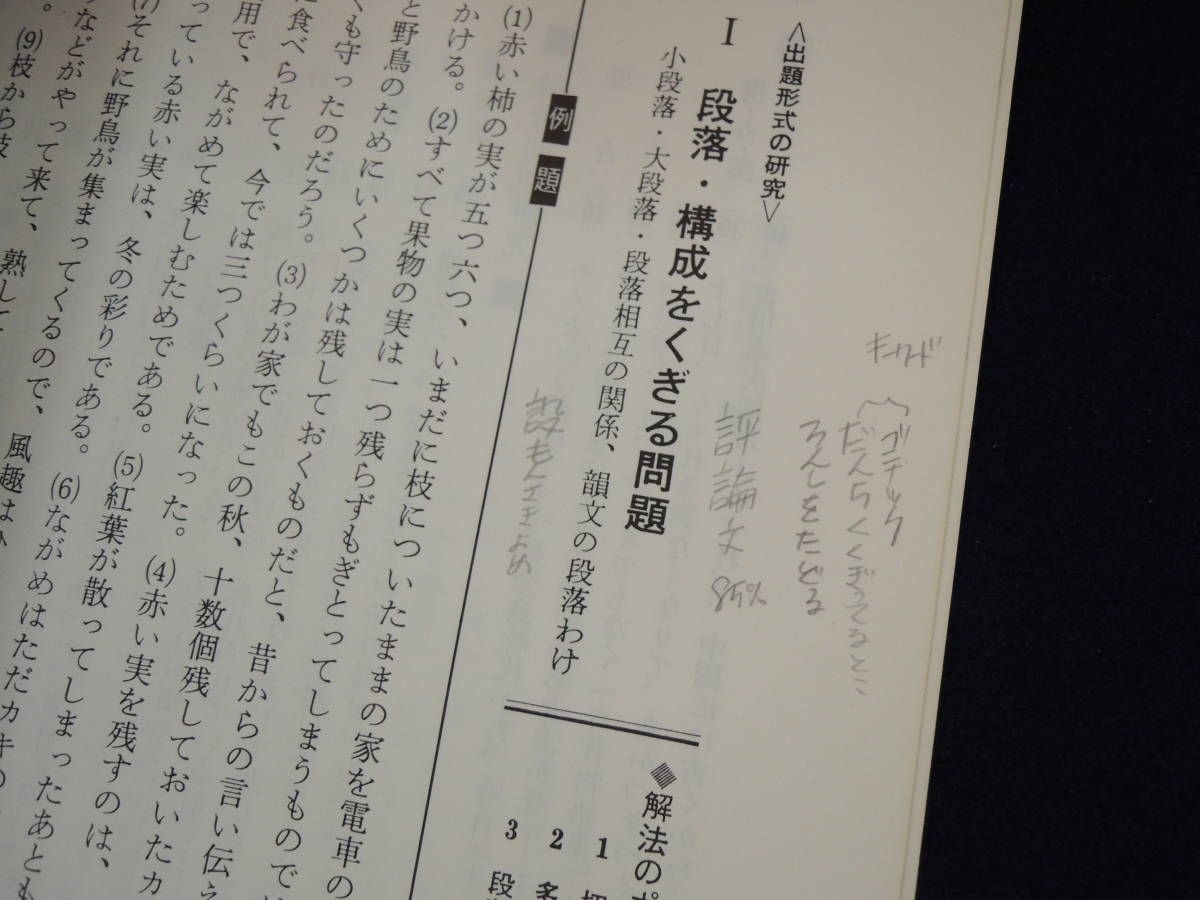 <出題形式の研究>
I 段落・構成をくぎる問題
小段落・大段落・段落相互の関係、韻文の段落わけ
キーワード
ゴデック
だんらくくぎってるとこ
ろんしをたどる
評論文 85%
例題
(1)赤い柿の実が五つ六つ、いまだに枝についたままの家を電車の
かける。(2)すべて果物の実は一つ残らずもぎとってしまうもので
と野鳥のためにいくつかは残しておくものだと、昔からの言い伝え
くも守ったのだろう。(3)わが家でもこの秋、十数個残しておいたカ
に食べられて、今では三つくらいになった。(4)赤い実を残すのは、
用で、ながめて楽しむためである。(5)紅葉が散ってしまったあとも
っている赤い実は、冬の彩りである。(6)ながめはただカキの
(7)それに野鳥が集まってくるので、風趣は
などがやって来て、熟して
(9)枝から枝
◆解法のポ
1
2 多
3 段